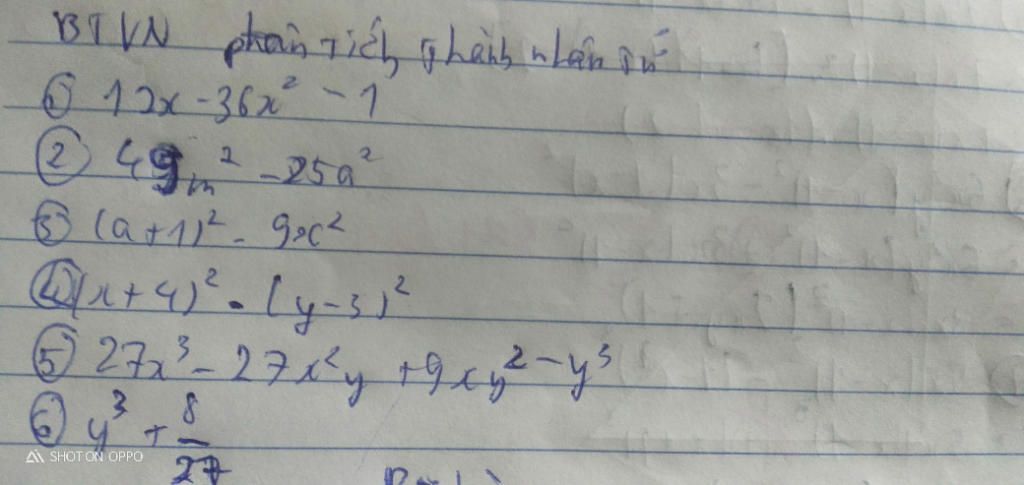 BTVN phân tích thành nhân tử
① 12x - 36x² - 1
② 49m² - 25a²
③ (a+1)² - 9x²
④ (x+4)² - (y-3)²
⑤ 27x³ - 27x²y + 9xy² - y³
⑥ y³ + 8/27
SHOT ON OPPO